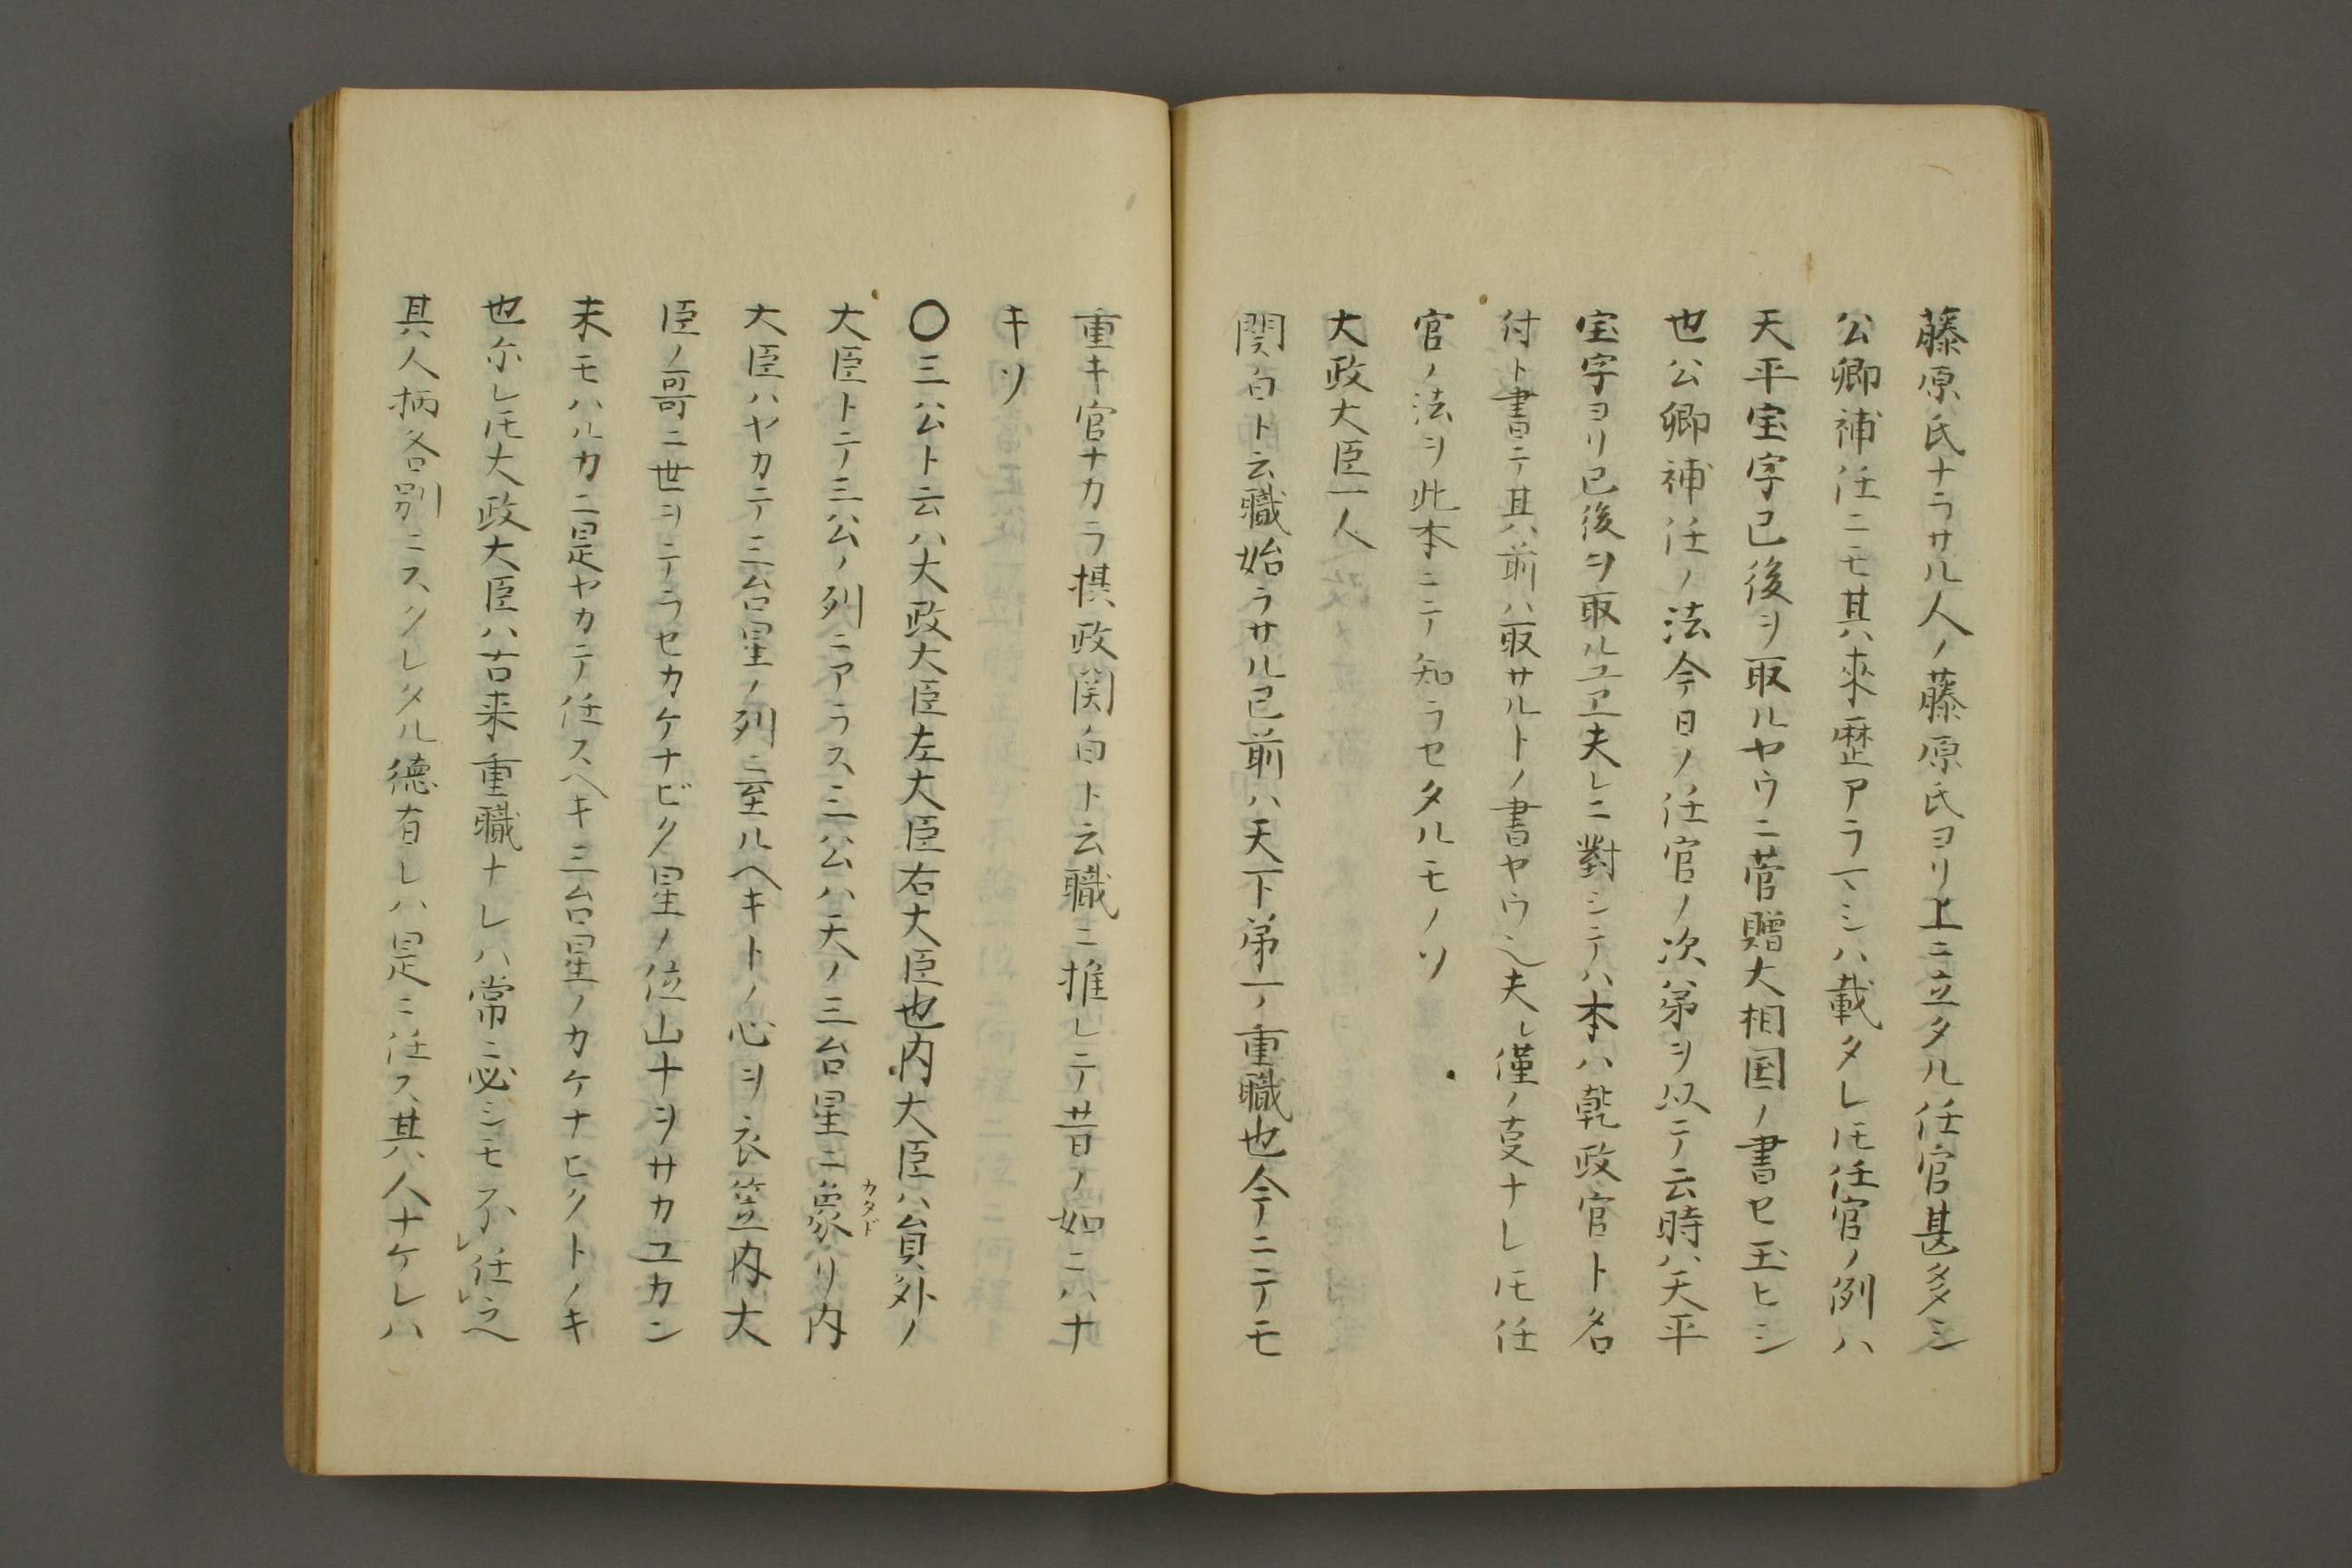 藤原氏ナラサル人ノ藤原氏ヨリ上ニ立タル任官甚多シ
公卿補任ニモ其来歴アラマシハ載タレ𪜈任官ノ例ハ
天平宝字已後ヲ取ルヤウニ菅贈大相国ノ書セ玉ヒシ
也公卿補任ノ法今日ノ任官ノ次第ヲ以テ云時ハ天平
宝字ヨリ已後ヲ取ルユヱ夫レニ對シテハ本ハ乾政官ト名
付ト書テ其前ハ取サルトノ書ヤウ也夫レ僅ノ叓ナレ𪜈任
官ノ法ヲ此本ニテ知ラセタルモノソ
大政大臣一人
関白ト云職始ラサル已前ハ天下第一ノ重職也今ニテモ
重キ官ナカラ摂政関白ト云職ニ推レテ昔ノ如ニハナ
キソ
〇三公ト云ハ大政大臣左大臣右大臣也内大臣ハ員外ノ
大臣トテ三公ノ列ニアラス三公ハ天ノ三台星ニ象リ内
カタド
大臣ハヤカテ三台星ノ列ニ至ルヘキトノ心ヲ衣笠内大
臣ノ哥ニ世ヲテラセカケナビク星ノ位山ナヲサカユカン
末モハルカニ是ヤカテ任スヘキ三台星ノカケナヒクトノキ
也尓レ𪜈大政大臣ハ古来重職ナレハ常ニ必シモ不㆑任㆑之
其人柄各別ニスクレタル徳有レハ是ニ任ス其人ナケレハ